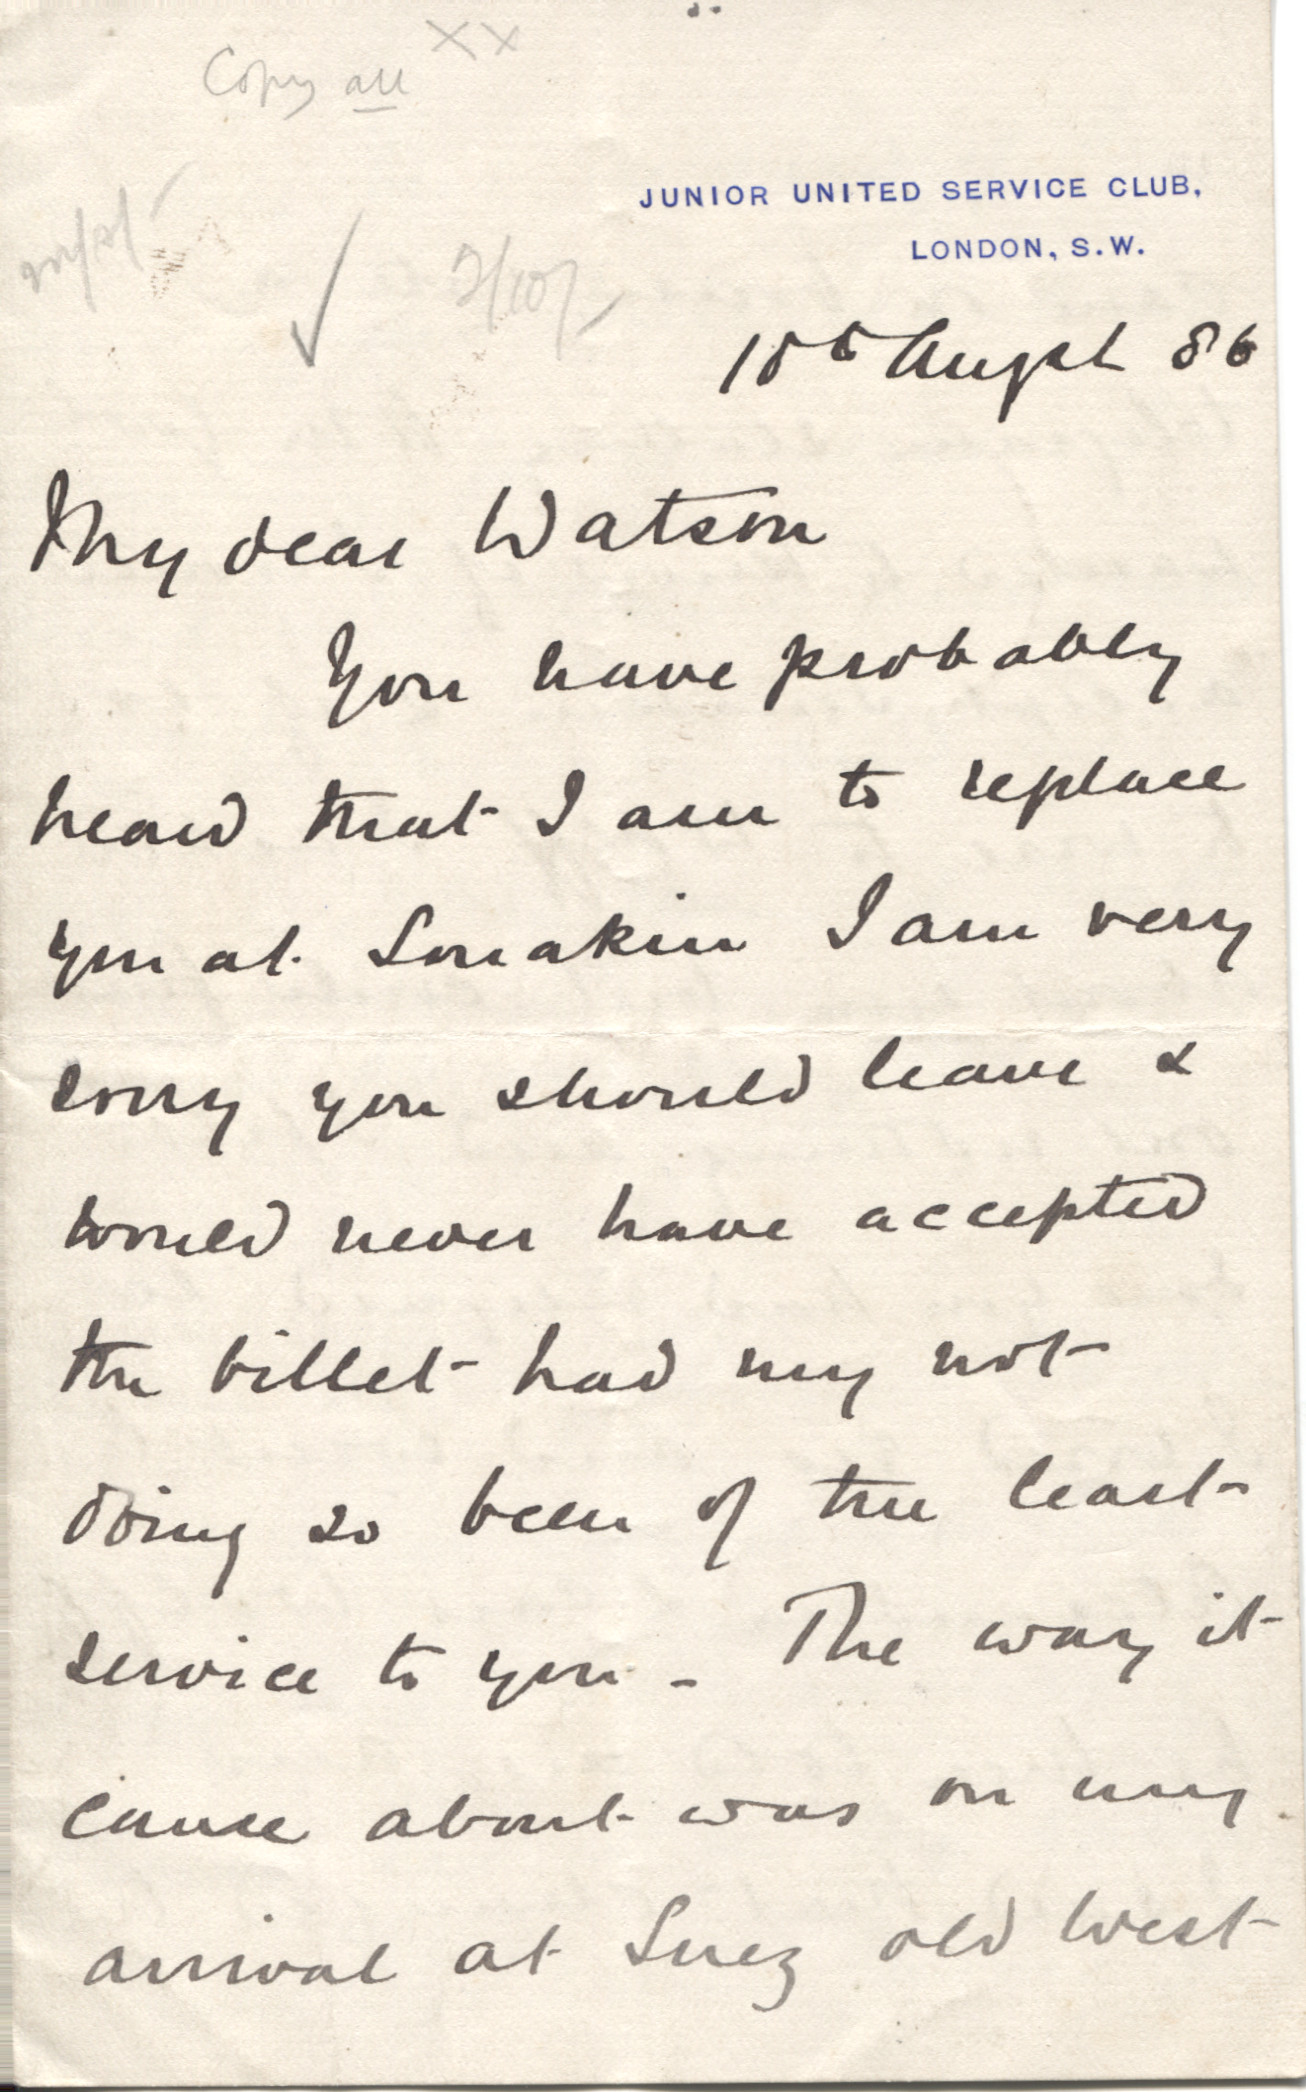 Copy all XX
JUNIOR UNITED SERVICE CLUB,
LONDON, S.W.
2/10/-
August 86
My dear Watson
You have probably
heard that I am to replace
you at Souakin I am very
sorry you should leave &
would never have accepted
the billet had my not
doing so been of the least
service to you - The way it
came about was on my
arrival at Suez old West